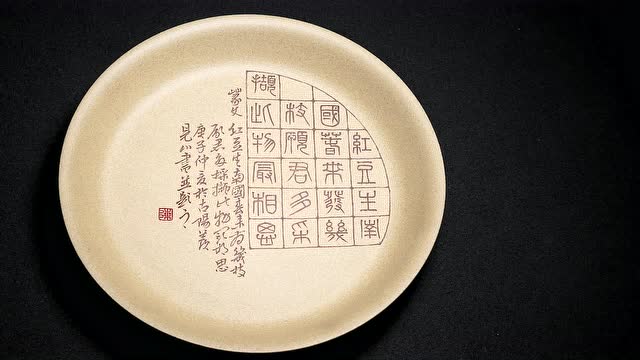 紅豆生南
國春來發幾
枝願君多采
擷此物最相思
篆文
紅豆生南國春來發幾枝
願君多採擷此物最相思
庚子仲夏於古陽羨
書並